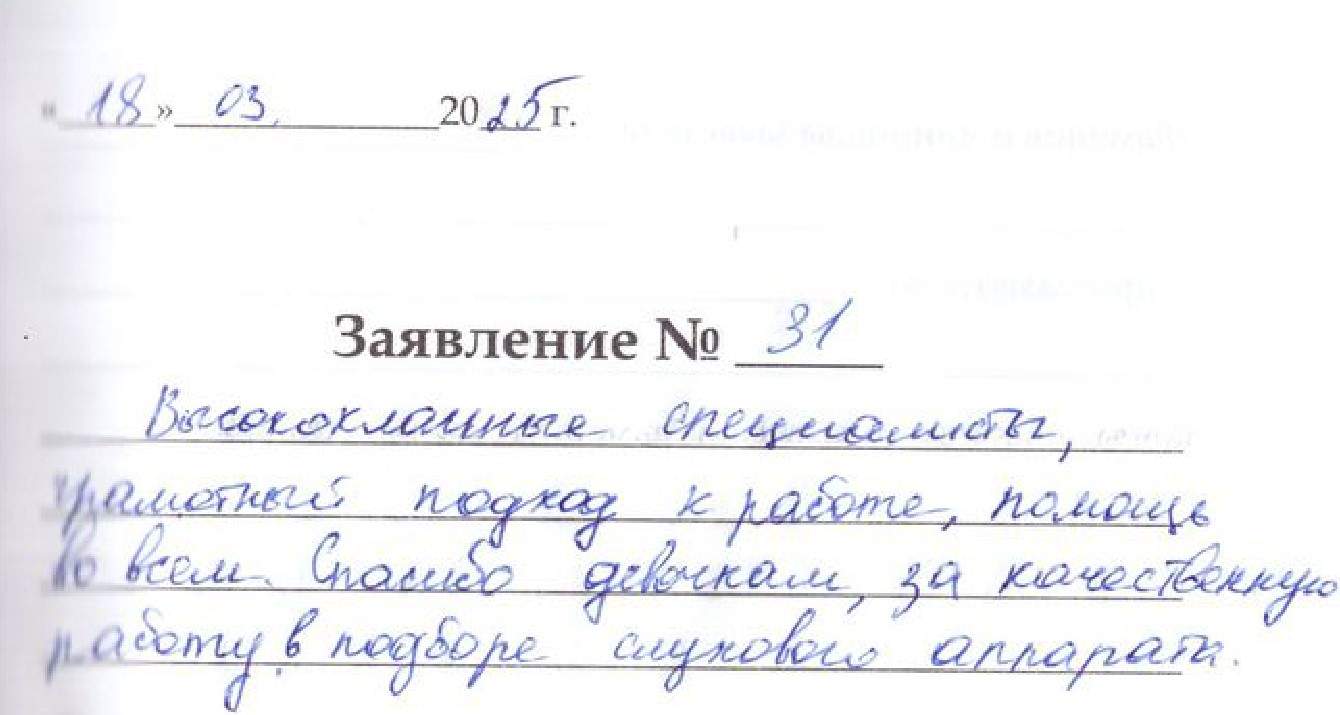 « 18 » 03. 2025 г.
Заявление № 31
Высококлассные специалисты,
грамотный подход к работе, помощь
во всем. Спасибо девочкам, за качественную
работу в подборе слухового аппарата.